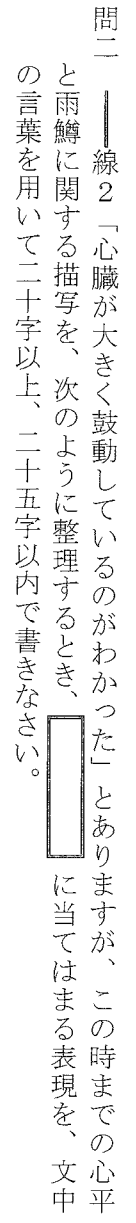 問二　――線2「心臓が大きく鼓動しているのがわかった」とありますが、この時までの心平
と雨鱒に関する描写を、次のように整理するとき、　　　に当てはまる表現を、文中
の言葉を用いて二十字以上、二十五字以内で書きなさい。